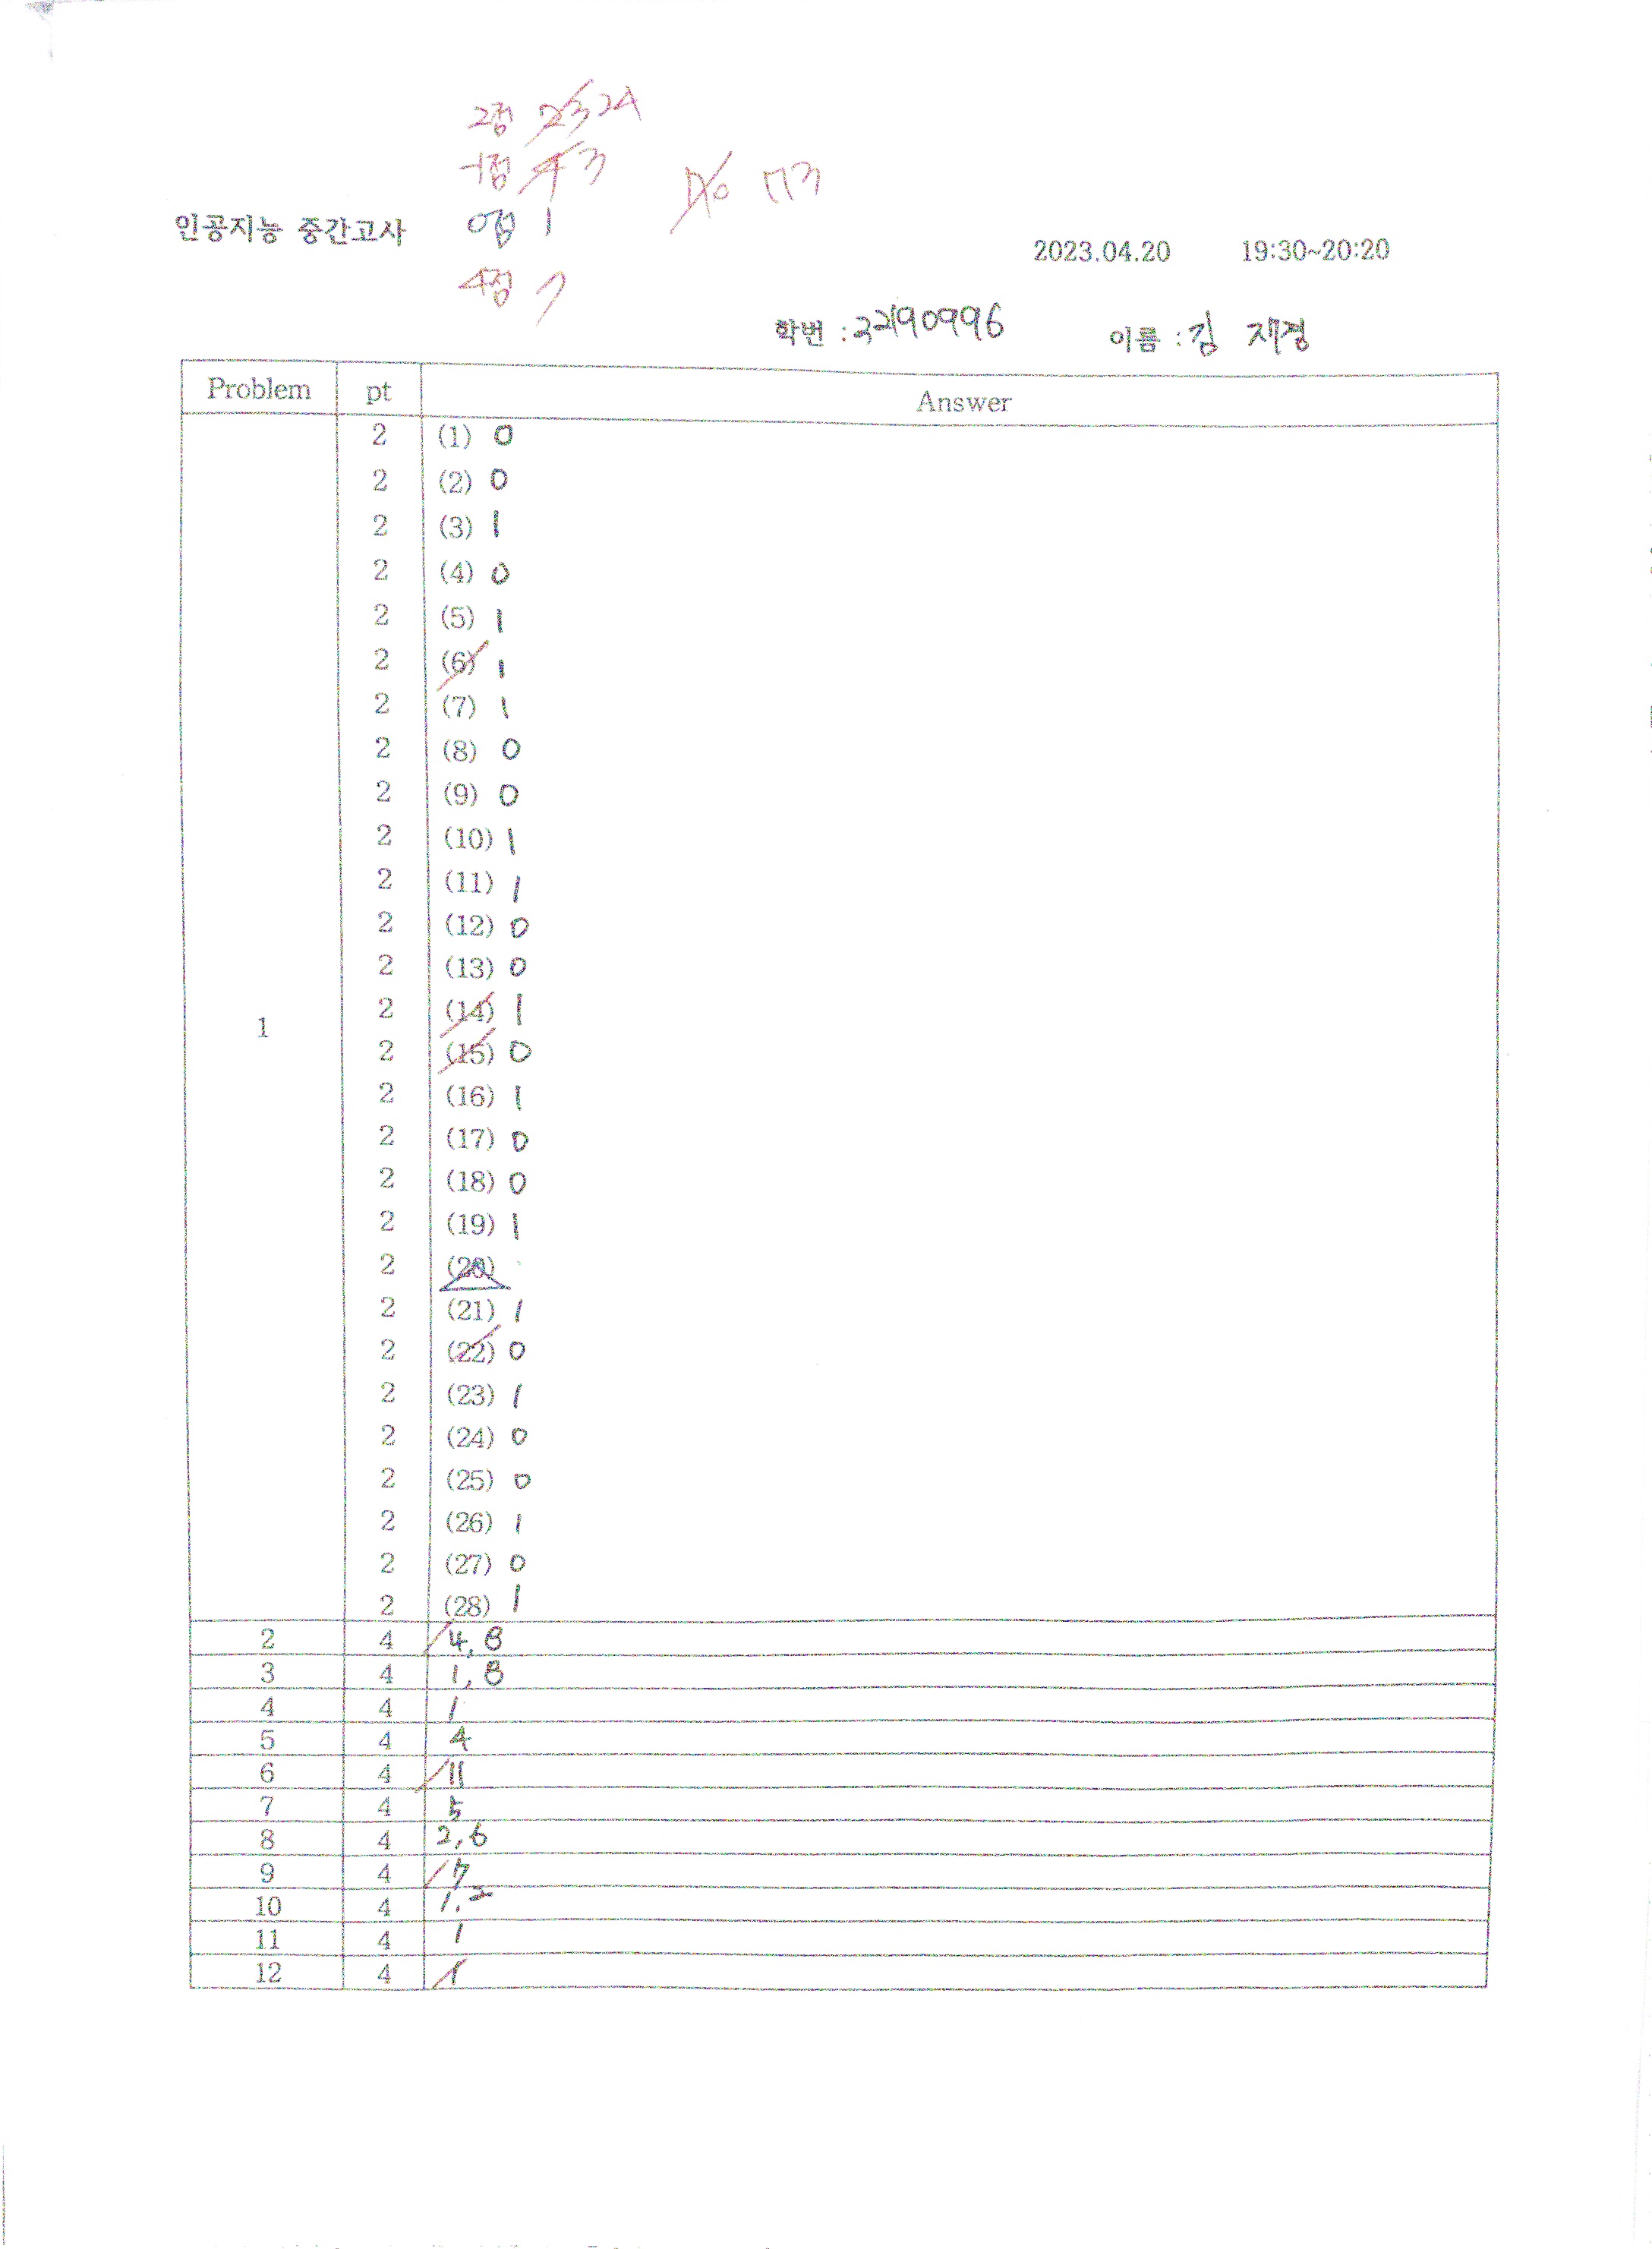 2점 23 24
-1점 4 3
70 73
인공지능 중간고사
0점 1
2023.04.20 19:30~20:20
4점 7
학번 : 22190996 이름 : 김 재경
Problem pt Answer
1
2 (1) 0
2 (2) 0
2 (3) 1
2 (4) 0
2 (5) 1
2 (6) 1
2 (7) 1
2 (8) 0
2 (9) 0
2 (10) 1
2 (11) 1
2 (12) 0
2 (13) 0
2 (14) 1
2 (15) 0
2 (16) 1
2 (17) 0
2 (18) 0
2 (19) 1
2 (20)
2 (21) 1
2 (22) 0
2 (23) 1
2 (24) 0
2 (25) 0
2 (26) 1
2 (27) 0
2 (28) 1
2 4 4, 8
3 4 1, 8
4 4 1
5 4 4
6 4 11
7 4 5
8 4 2, 6
9 4 7
10 4 1, 2
11 4 1
12 4 1